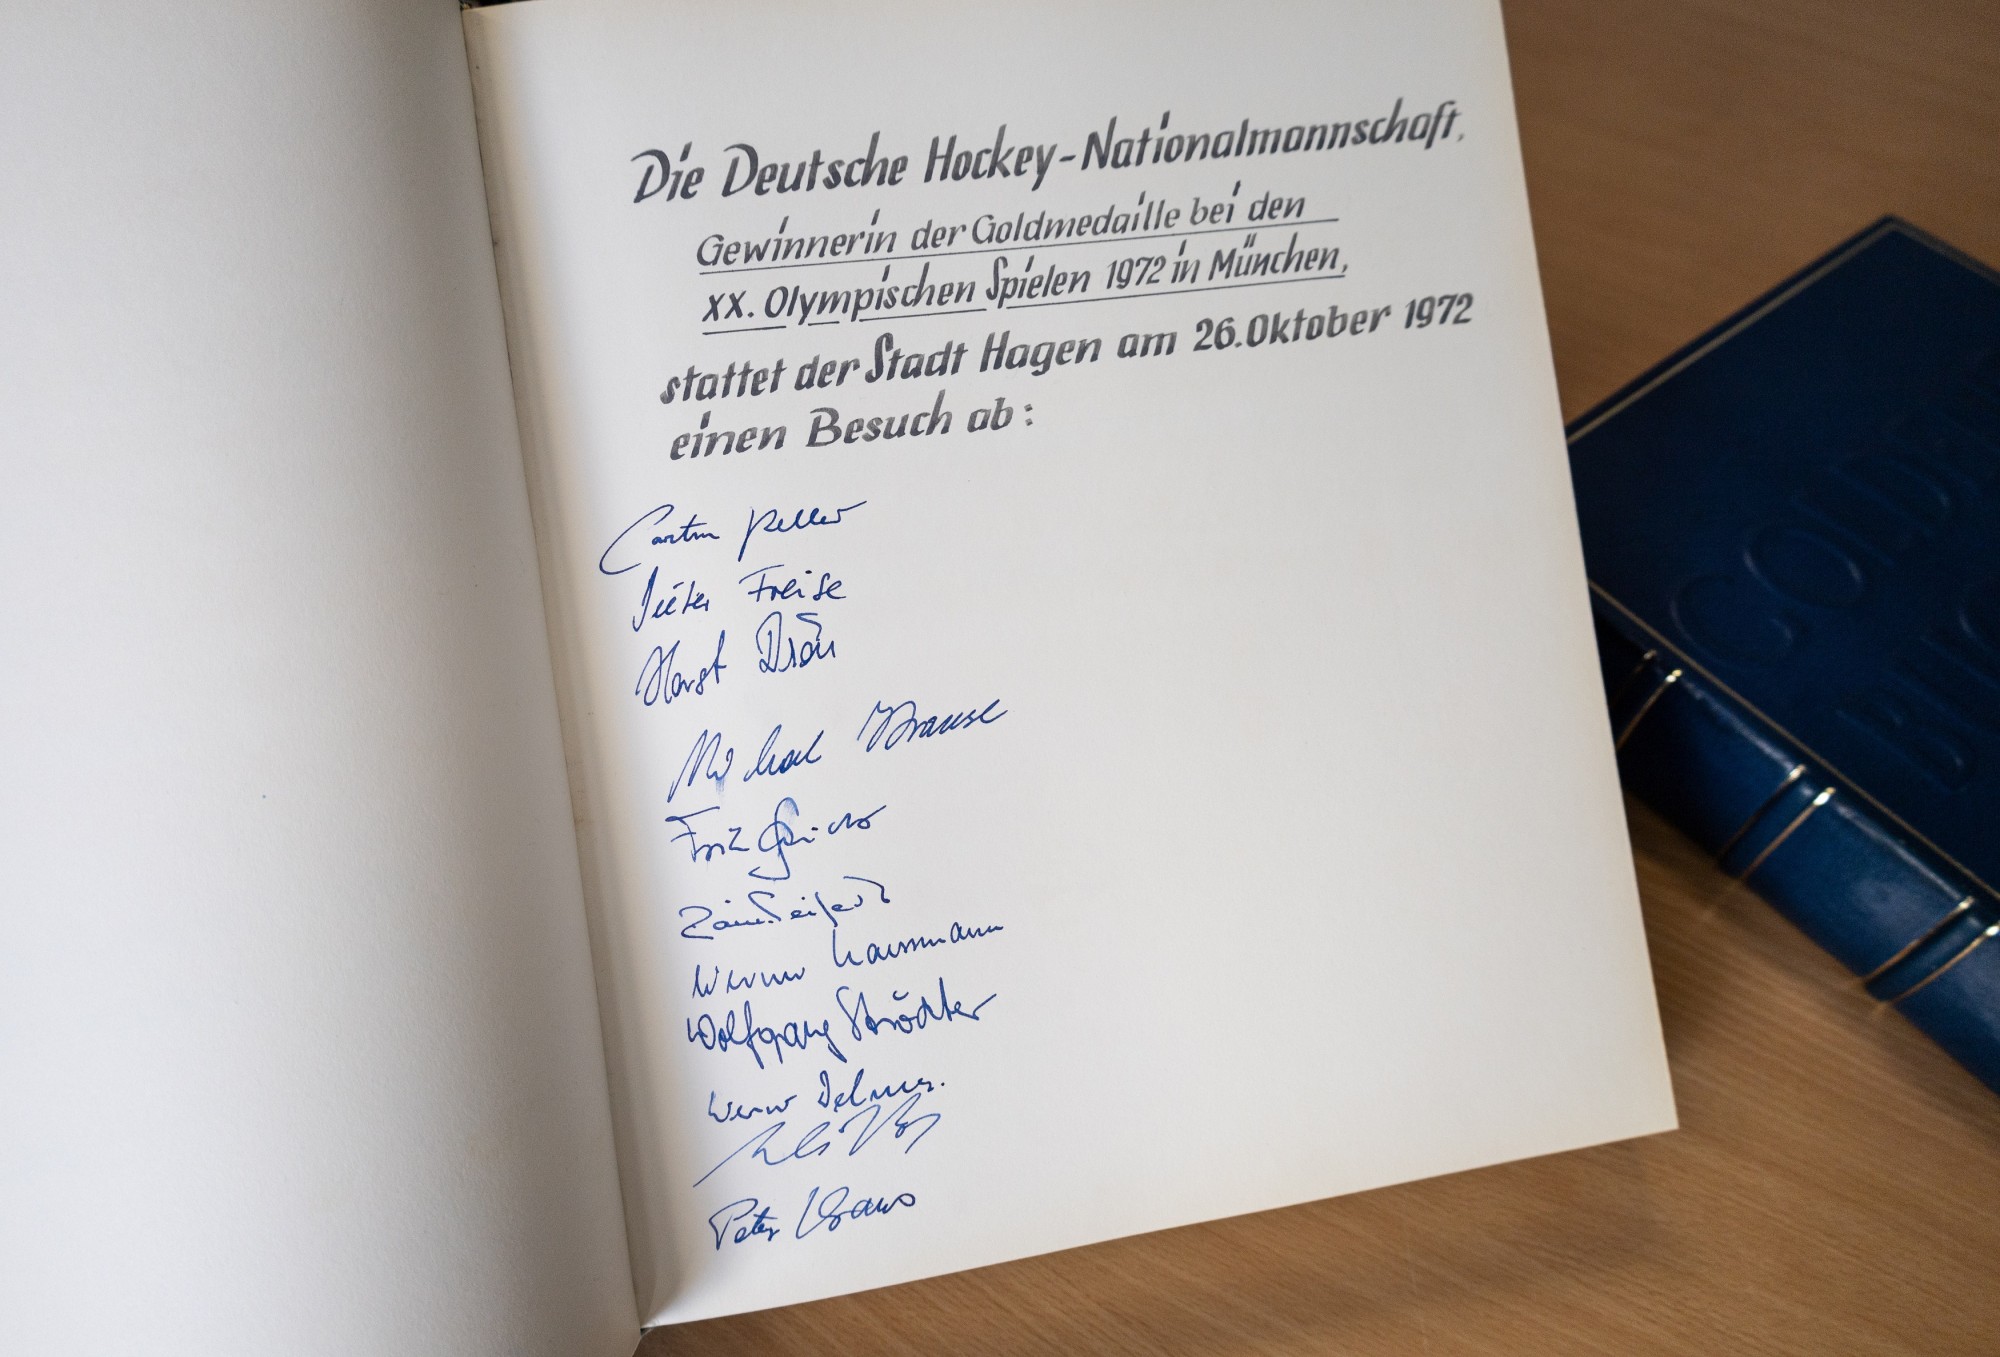 Die Deutsche Hockey-Nationalmannschaft,
Gewinnerin der Goldmedaille bei den
XX. Olympischen Spielen 1972 in München,
stattet der Stadt Hagen am 26. Oktober 1972
einen Besuch ab:
Carsten Keller
Dieter Freise
Horst Dröse
Michael Krause
Fritz
Werner Kaessmann
Wolfgang Strödter
Werner Delmes.
Peter Kraus